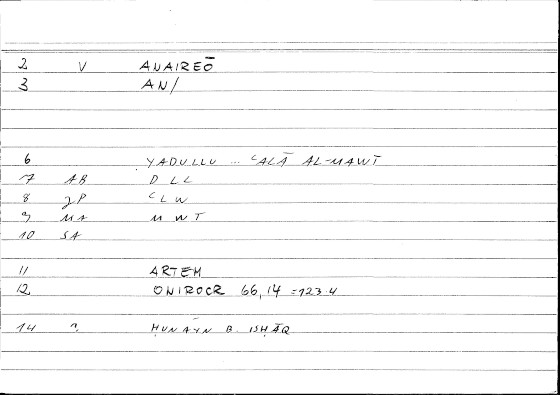 2 V ANAIREŌ
3 AN/
6 YADULLU ... ʿALĀ AL-MAWT
7 AB DLL
8 JP ʿLW
9 MA MWT
10 SA
11 ARTEM
12 ONIROCR 66,14 = 123.4
14 ḤUNAYN B. ISḤĀQ